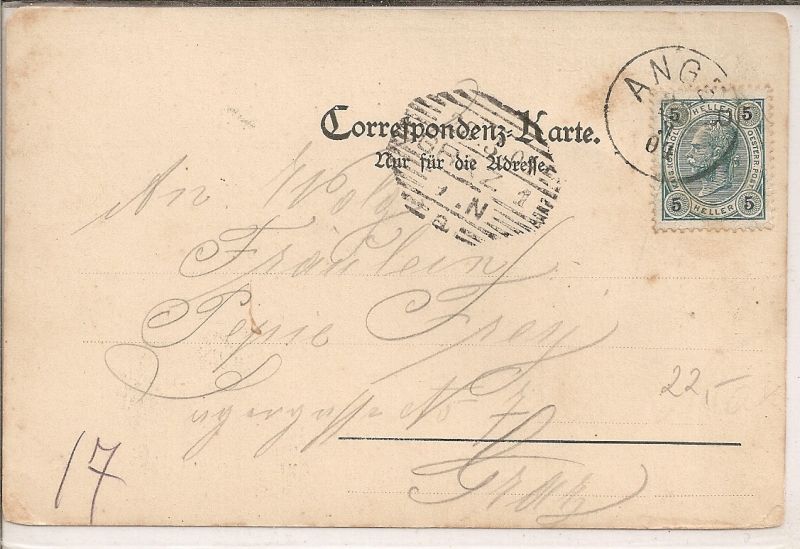 Correspondenz-Karte.
Nur für die Adresse.
ANG
5 HELLER 5
5 HELLER 5
An Wolg
Fräulein
Pepie Frey
Lagergasse No 7
Graz
22,-
17